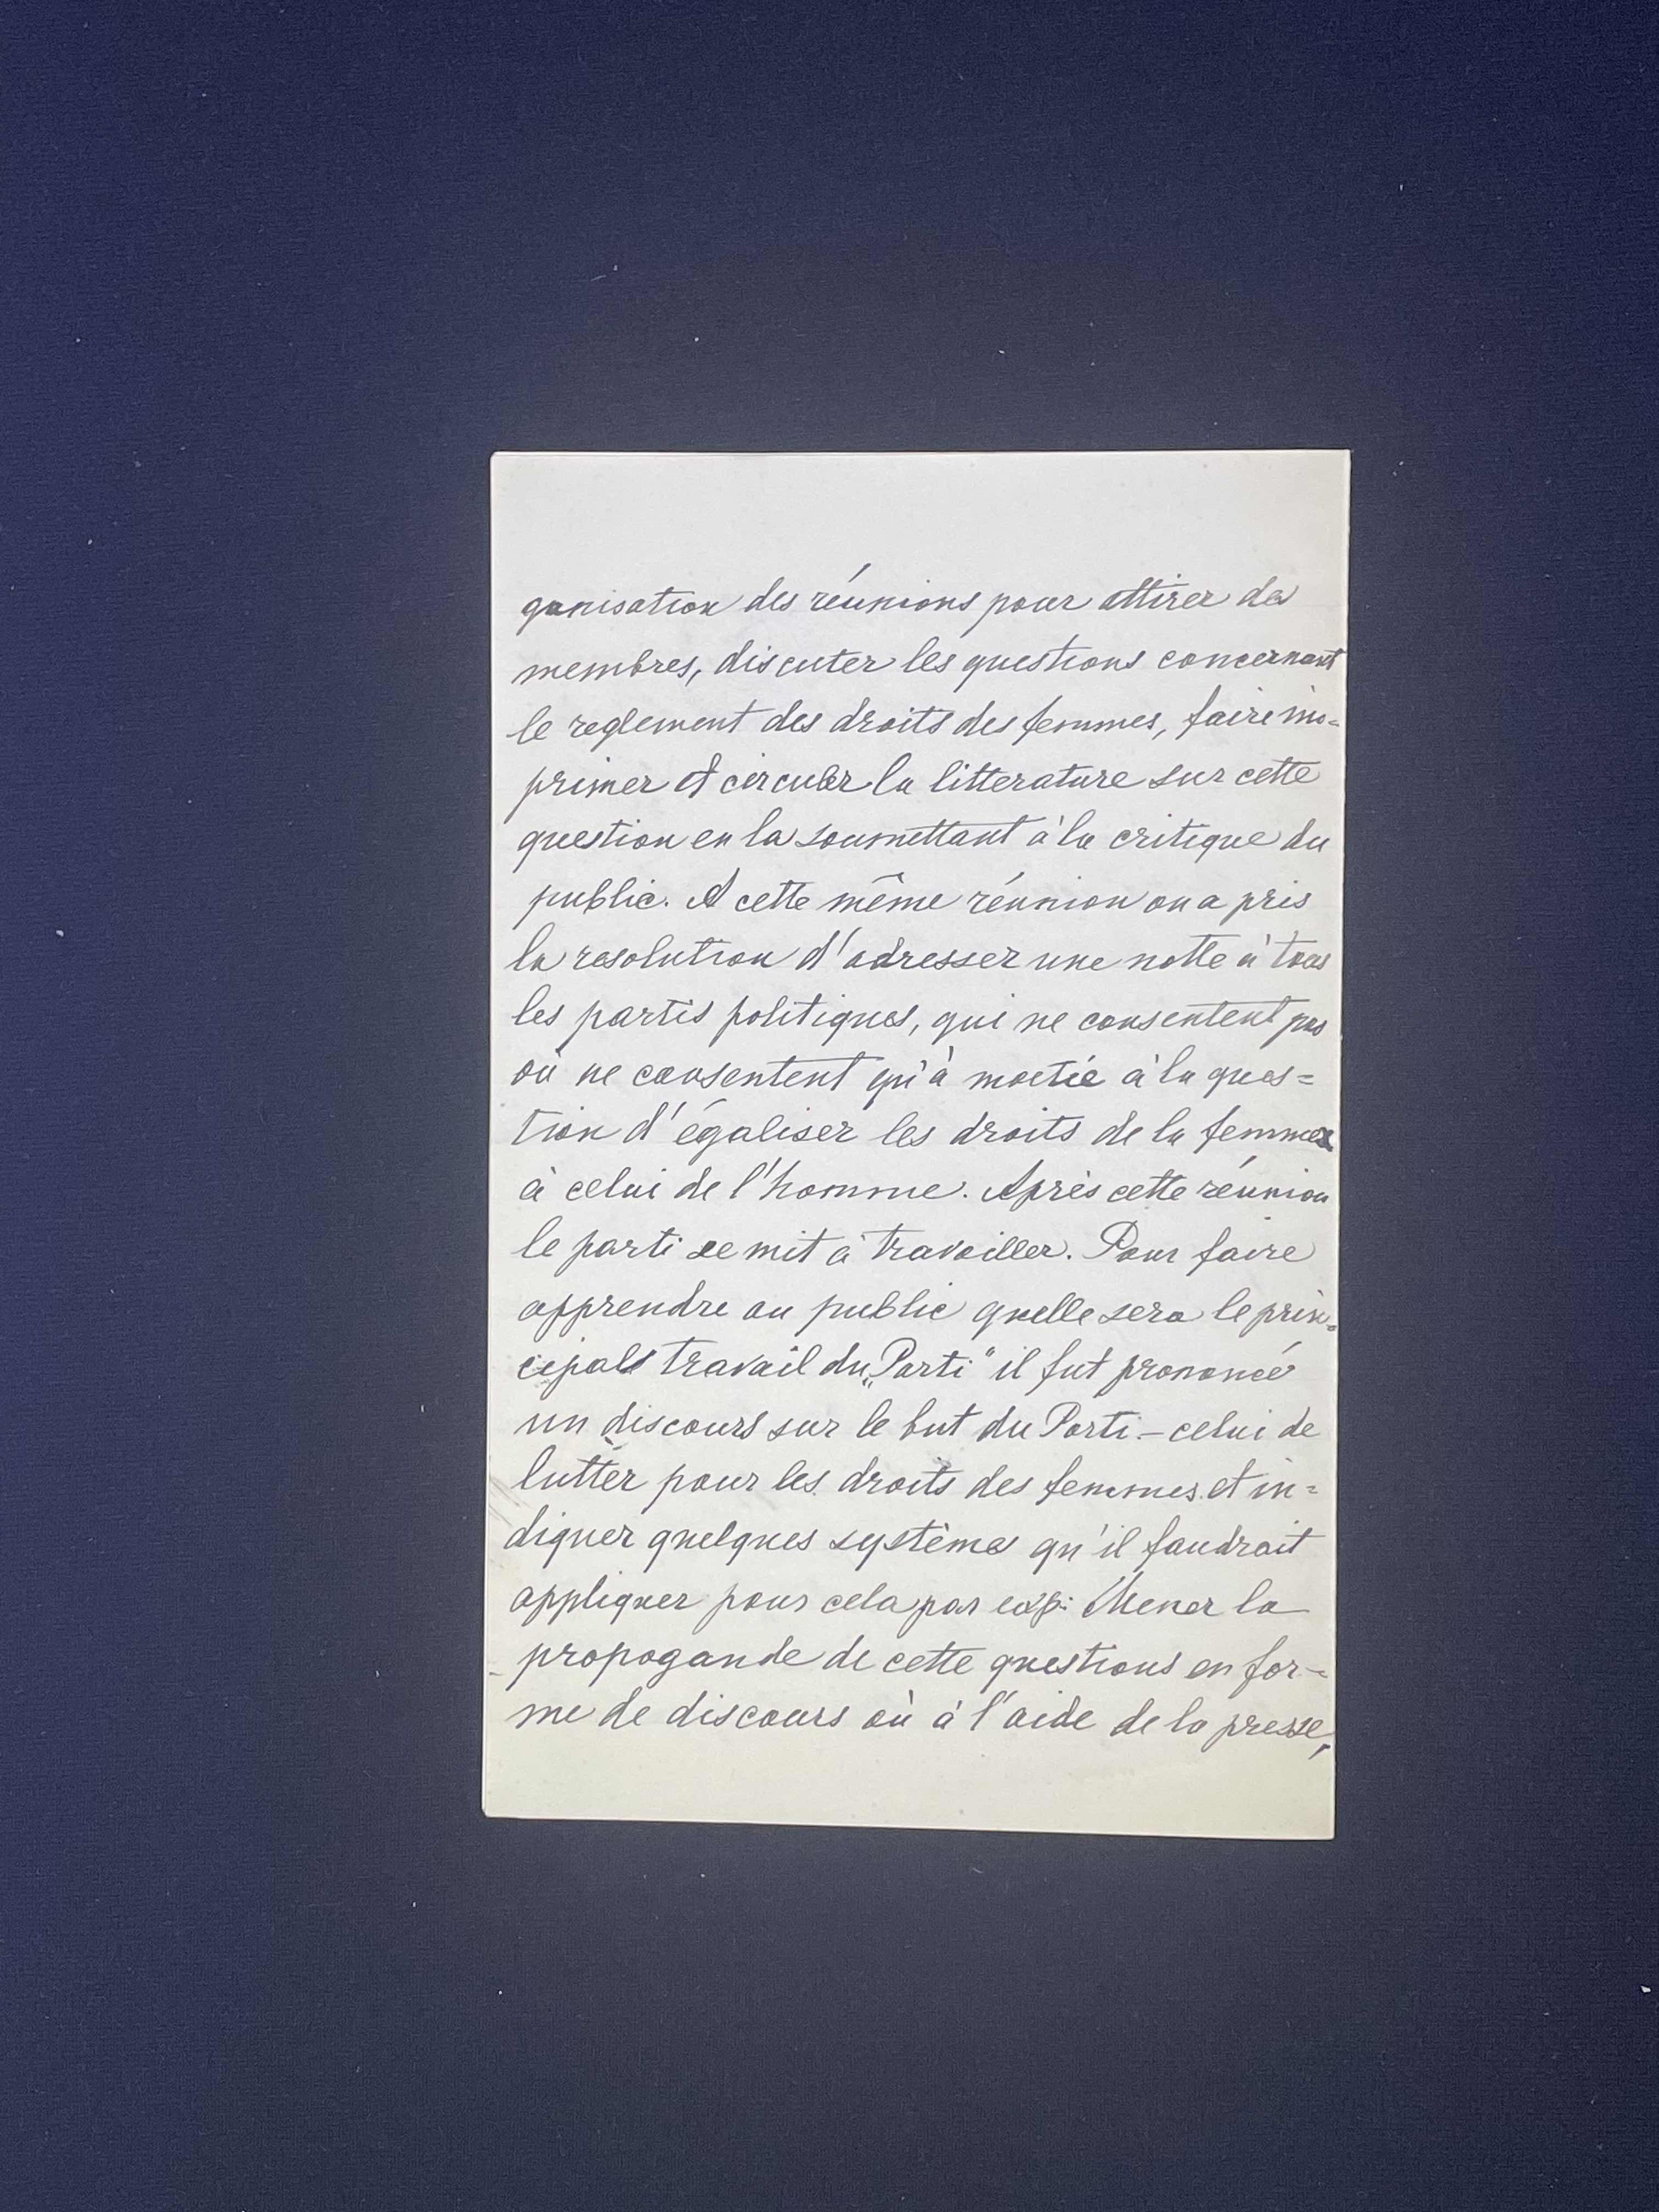 ganisation des réunions pour attirer des
membres, discuter les questions concernant
le reglement des droits des femmes, faire im=
primer et circuler la litterature sur cette
question en la soumettant à la critique du
public. A cette même réunion on a pris
la resolution d'adresser une notte à tous
les partis politiques, qui ne consentent pas
où ne consentent qu'à moitié à la ques=
tion d'égaliser les droits de la femme
à celui de l'homme. Après cette réunion
le parti se mit à travailler. Pour faire
apprendre au public quelle sera le prin=
cipals travail du „Parti" il fut prononcé
un discours sur le but du Parti – celui de
lutter pour les droits des femmes et in=
diquer quelques système qu'il faudrait
appliquer pour cela par exp: Mener la
propogande de cette questions en for=
me de discours où à l'aide de la presse,